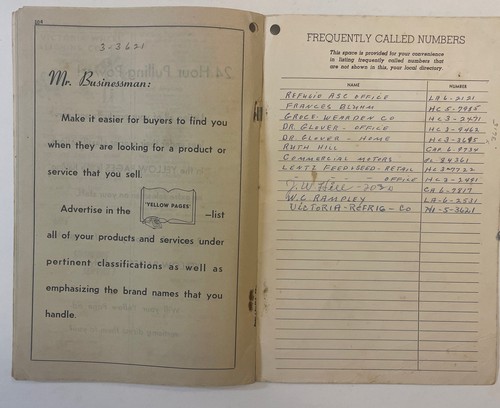 104
3-3621
Mr. Businessman:
Make it easier for buyers to find you
when they are looking for a product or
service that you sell.
Advertise in the "YELLOW PAGES" —list
all of your products and services under
pertinent classifications as well as
emphasizing the brand names that you
handle.
FREQUENTLY CALLED NUMBERS
This space is provided for your convenience
in listing frequently called numbers that
are not shown in this, your local directory.
NAME NUMBER
REFUGIO ASC OFFICE LA-6-2121
FRANCES BLUHM HC 5-7985
GROCE-WEARDEN CO HC 3-2471
DR. GLOVER - OFFICE HC 3-9463
DR. GLOVER - HOME HC 3-3695
RUTH HILL CAR 6-9734
COMMERCIAL MOTORS 84361
LENTZ FEED & SEED - RETAIL HC 3-7722
" " " " - OFFICE HC 3-2491
J. W. Hill - 2020 CA 6-7817
W.G. RAMPLEY LA-6-2531
VICTORIA - REFRIG - CO HI-5-3621